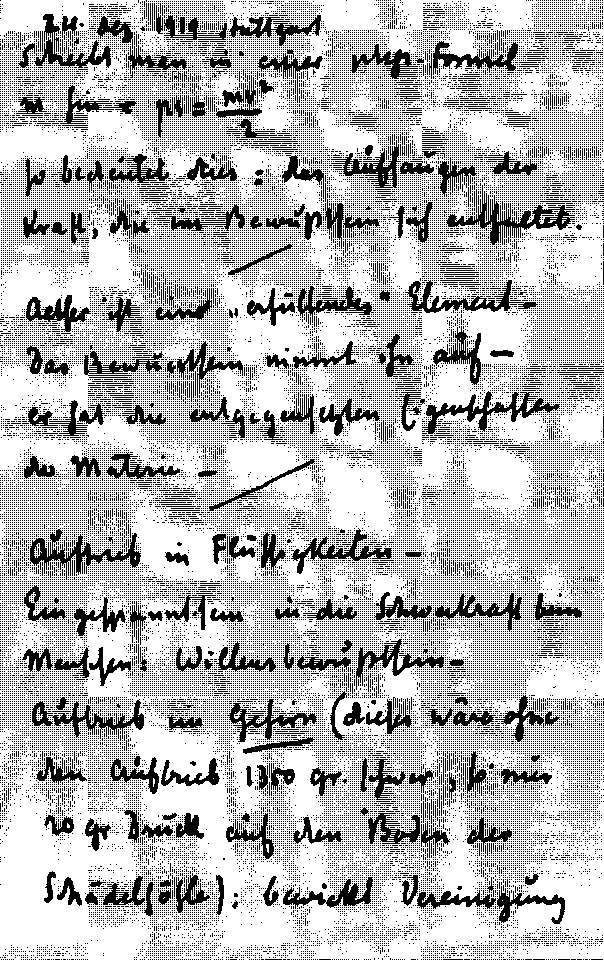 24. Dez. 1919 Stuttgart
Schreibt man in einer phys. Formel
m hin = ps = mv²/2
so bedeutet dies: das Auffangen der
Kraft, die im Bewußtsein sich entfaltet.
Aether ist eine „erfüllendes" Element –
Das Bewusstsein nimmt ihn auf –
er hat die entgegensetzten Eigenschaften
der Materie –
Auftrieb in Flüssigkeiten –
Eingespanntsein in die Schwerkraft beim
Menschen: Willensbewußtsein –
Auftrieb im Gehirn (dieses wäre ohne
den Auftrieb 1350 gr. schwer, so nur
20 gr Druck auf den Boden der
Schädelhöhle): bewirkt Vereinigung